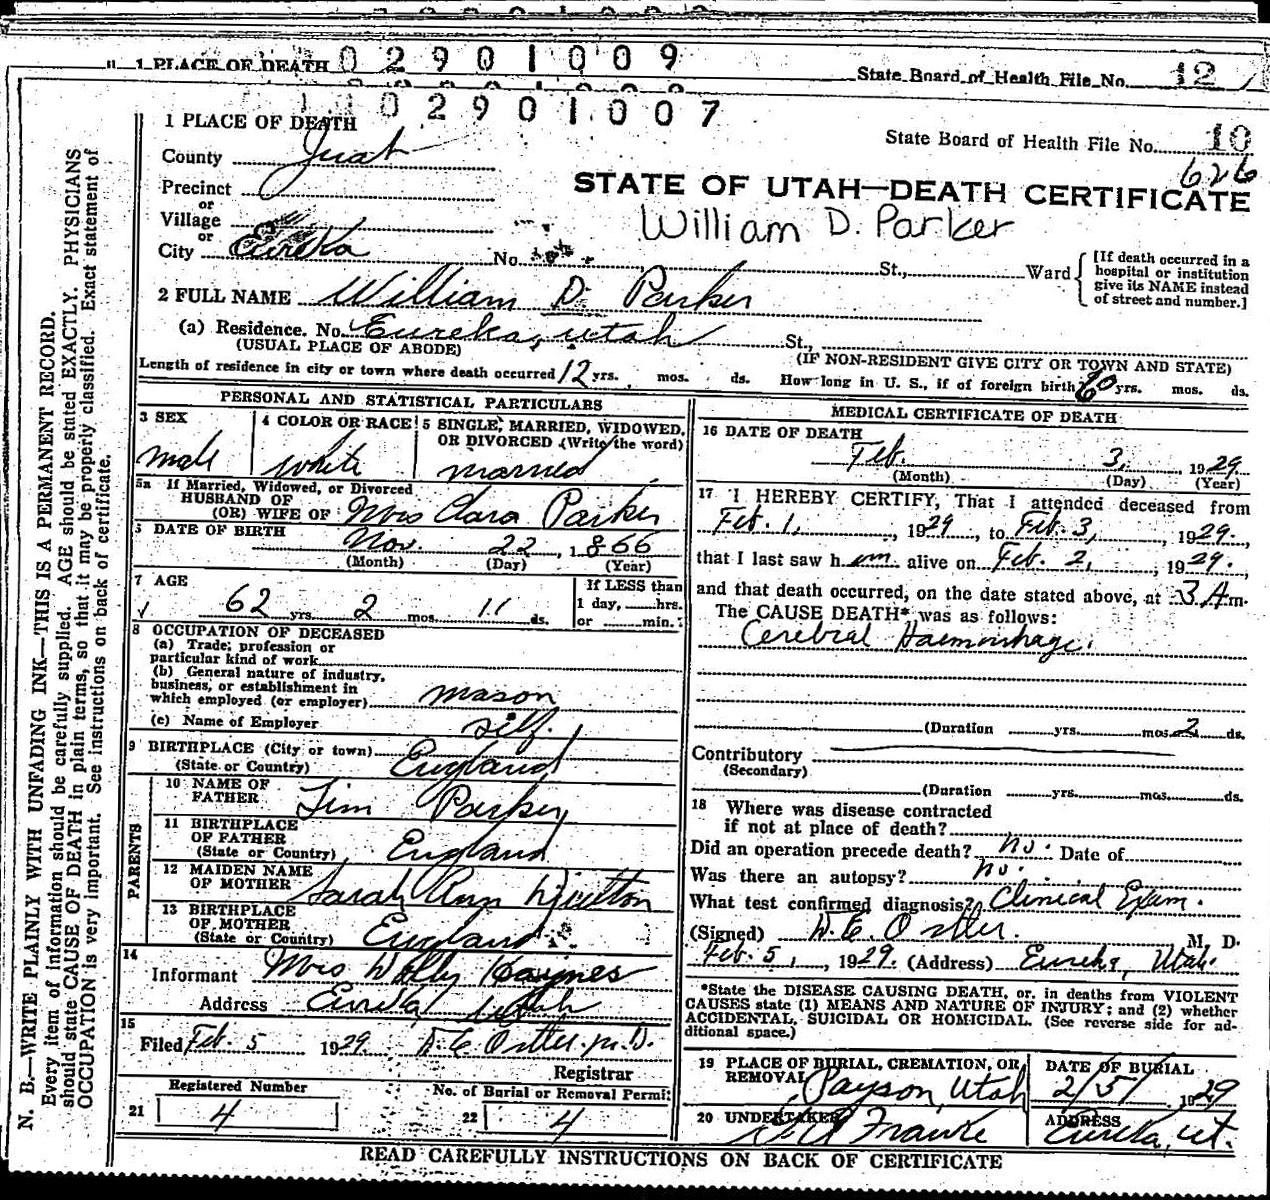 1 PLACE OF DEATH 0 2 9 0 1 0 0 9
State Board of Health File No. 12
1 0 2 9 0 1 0 0 7
1 PLACE OF DEATH
State Board of Health File No. 10
626
County Juab
Precinct
or
Village
or
City Eureka No. St., Ward
STATE OF UTAH—DEATH CERTIFICATE
William D. Parker
[If death occurred in a
hospital or institution
give its NAME instead
of street and number.]
2 FULL NAME William D. Parker
(a) Residence. No. Eureka, Utah St.,
(USUAL PLACE OF ABODE) (IF NON-RESIDENT GIVE CITY OR TOWN AND STATE)
Length of residence in city or town where death occurred 12 yrs. mos. ds. How long in U. S., if of foreign birth? 60 yrs. mos. ds.
PERSONAL AND STATISTICAL PARTICULARS
3 SEX
male
4 COLOR OR RACE
white
5 SINGLE, MARRIED, WIDOWED,
OR DIVORCED (Write the word)
married
5a If Married, Widowed, or Divorced
HUSBAND OF
(OR) WIFE OF Mrs Clara Parker
DATE OF BIRTH
Nov. 22, 1866
(Month) (Day) (Year)
7 AGE
62 yrs. 2 mos. 11 ds.
If LESS than
1 day, hrs.
or min.
8 OCCUPATION OF DECEASED
(a) Trade, profession or
particular kind of work
(b) General nature of industry,
business, or establishment in
which employed (or employer) mason
(c) Name of Employer self.
9 BIRTHPLACE (City or town)
(State or Country) England
PARENTS
10 NAME OF
FATHER Jim Parker
11 BIRTHPLACE
OF FATHER
(State or Country) England
12 MAIDEN NAME
OF MOTHER Sarah Ann
13 BIRTHPLACE
OF MOTHER
(State or Country) England
14
Informant Mrs Haynes
Address Eureka Utah
15
Filed Feb. 5 1929 D. E. Ostler, M.D.
Registrar
Registered Number
21 4
No. of Burial or Removal Permit
22 4
MEDICAL CERTIFICATE OF DEATH
16 DATE OF DEATH
Feb. 3, 1929
(Month) (Day) (Year)
17 I HEREBY CERTIFY, That I attended deceased from
Feb. 1, 1929, to Feb. 3, 1929.,
that I last saw him alive on Feb. 2, 1929.,
and that death occurred, on the date stated above, at 3 A m.
The CAUSE DEATH* was as follows:
Cerebral Haemorrhage.
(Duration yrs. mos. 2 ds.
Contributory
(Secondary)
(Duration yrs. mos. ds.
18 Where was disease contracted
if not at place of death?
Did an operation precede death? no. Date of
Was there an autopsy? no.
What test confirmed diagnosis? Clinical Exam.
(Signed) D. E. Ostler. M. D.
Feb. 5, 1929. (Address) Eureka, Utah.
*State the DISEASE CAUSING DEATH, or, in deaths from VIOLENT
CAUSES state (1) MEANS AND NATURE OF INJURY; and (2) whether
ACCIDENTAL, SUICIDAL OR HOMICIDAL. (See reverse side for ad-
ditional space.)
19 PLACE OF BURIAL, CREMATION, OR
REMOVAL Payson, Utah
DATE OF BURIAL
2/5/ 1929
20 UNDERTAKER
Franke
ADDRESS
Eureka, Ut.
READ CAREFULLY INSTRUCTIONS ON BACK OF CERTIFICATE
N. B.—WRITE PLAINLY WITH UNFADING INK—THIS IS A PERMANENT RECORD.
Every item of information should be carefully supplied. AGE should be stated EXACTLY. PHYSICIANS
should state CAUSE OF DEATH in plain terms, so that it may be properly classified. Exact statement of
OCCUPATION is very important. See instructions on back of certificate.